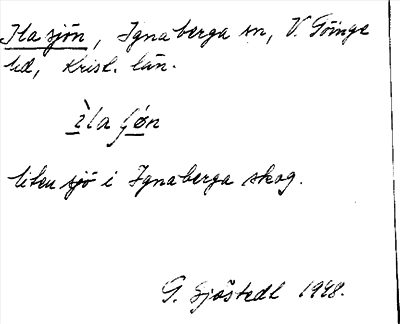 Ila sjön, Ignaberga sn, V. Göinge
hd, Krist. län.
ìla ʃøn
liten sjö i Ignaberga skog.
G. Sjöstedt 1948.